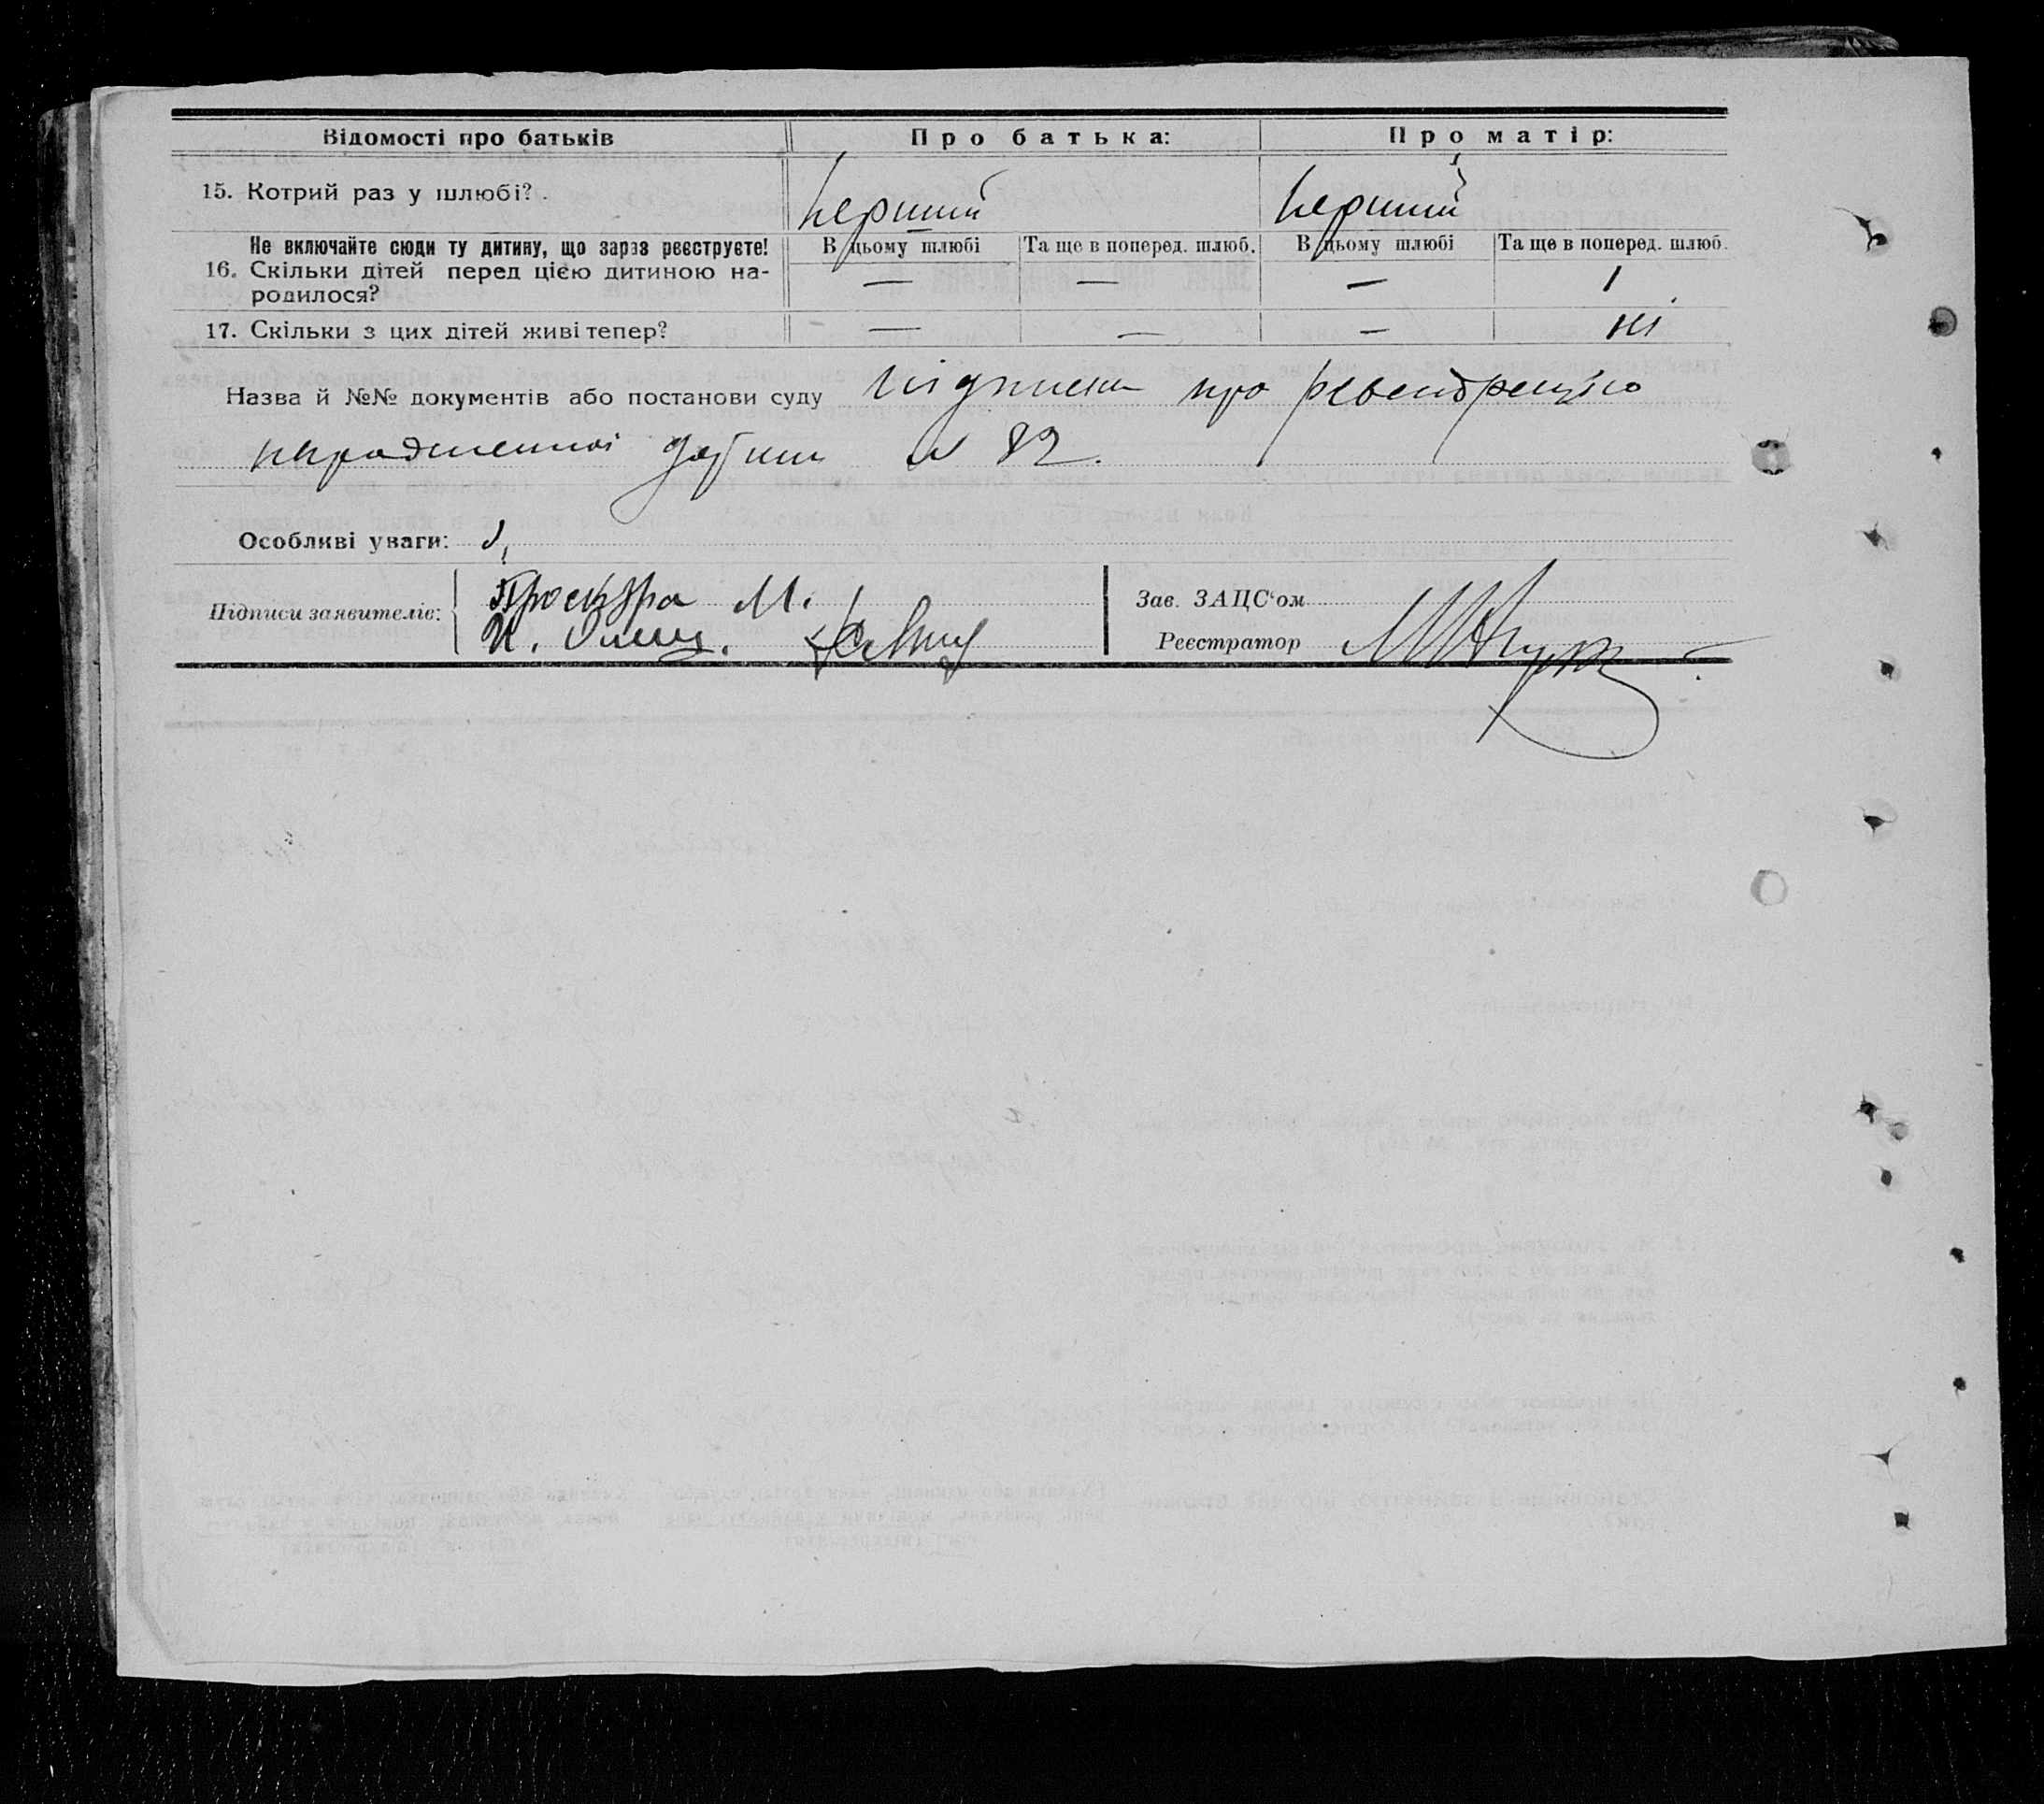 Відомості про батьків Про батька: Про матір:
15. Котрий раз у шлюбі? перший перший
Не включайте сюди ту дитину, що зараз реєструєте! В цьому шлюбі Та ще в поперед. шлюб. В цьому шлюбі Та ще в поперед. шлюб.
16. Скільки дітей перед цією дитиною на-
родилося? — — — 1
17. Скільки з цих дітей живі тепер? — — — ні
Назва й №№ документів або постанови суду підписка про
дитини № 82.
Особливі уваги:
Підписи заявителів: Проскура М.
Зав. ЗАЦС'ом
Реєстратор